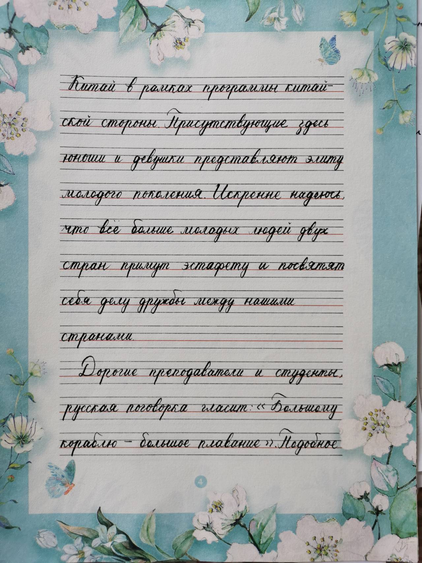 Китай в рамках программы китай-
ской стороны. Присутствующие здесь
юноши и девушки представляют элиту
молодого поколения. Искренне надеюсь,
что всё больше молодых людей двух
стран примут эстафету и посвятят
себя делу дружбы между нашими
странами.
Дорогие преподаватели и студенты,
русская поговорка гласит: «Большому
кораблю — большое плавание». Подобное
4